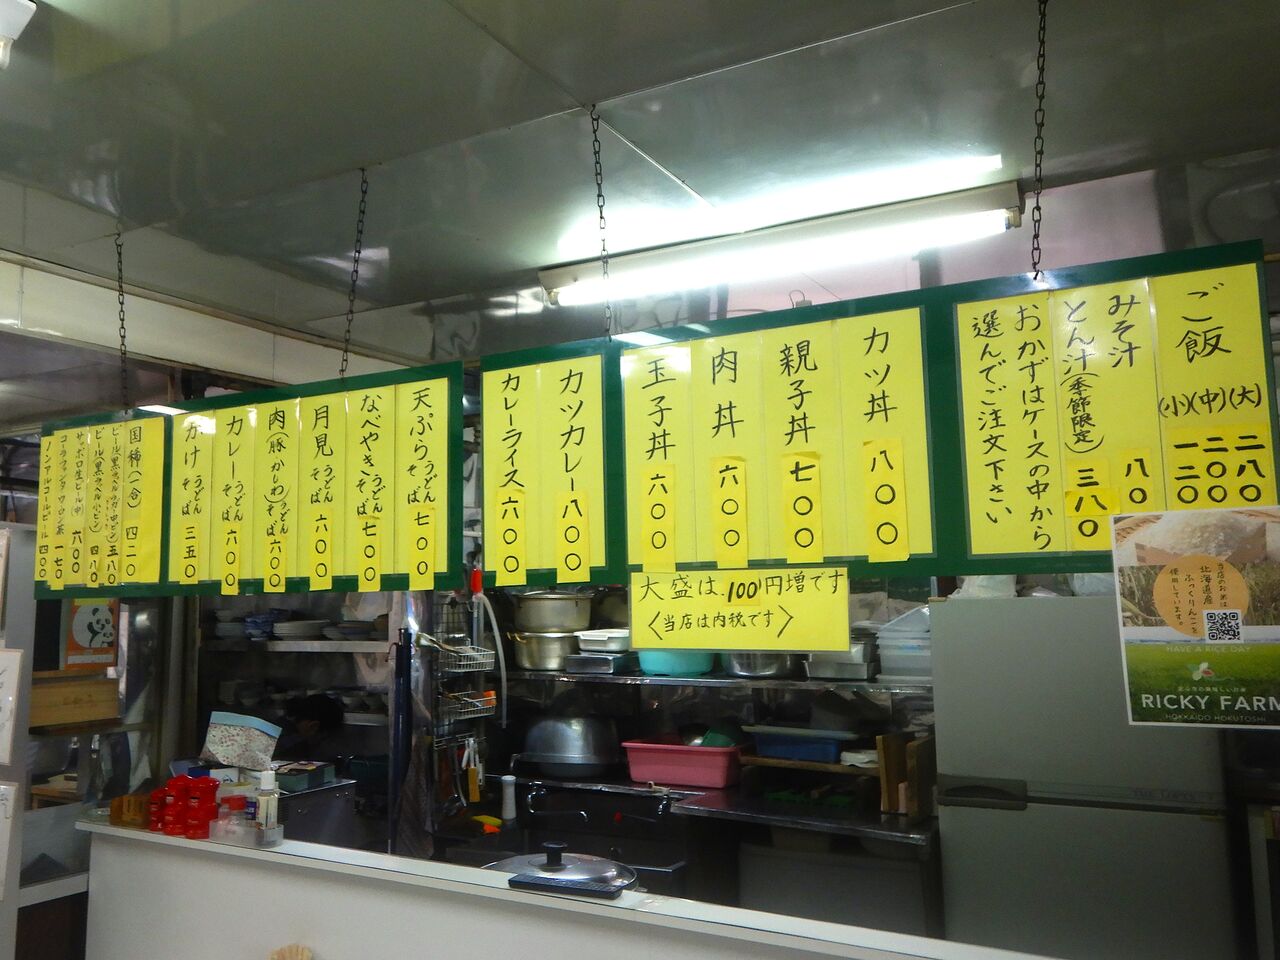 ご飯
(大) 二八〇
(中) 二〇〇
(小) 一二〇
みそ汁 八〇
とん汁(季節限定) 三八〇
おかずはケースの中から
選んでご注文下さい
カツ丼 八〇〇
親子丼 七〇〇
肉丼 六〇〇
玉子丼 六〇〇
カツカレー 八〇〇
カレーライス 六〇〇
天ぷら うどん そば 七〇〇
なべやきうどん そば 七〇〇
月見 うどん そば 六〇〇
肉(豚かしわ)うどん そば 六〇〇
カレー うどん そば 六〇〇
かけ うどん そば 三五〇
国稀(一合) 四二〇
ビール(黒ラベル中ビン) 五八〇
ビール(黒ラベル小ビン) 四八〇
サッポロ生ビール(中) 六〇〇
コーラファンタウーロン茶 一七〇
ノンアルコールビール 四〇〇
大盛は、100円増です
〈当店は内税です〉
当店のお米は
北海道産
ふっくりんこを
使用しています。
HAVE A RICE DAY
RICKY FARM
HOKKAIDO HOKUTOSHI